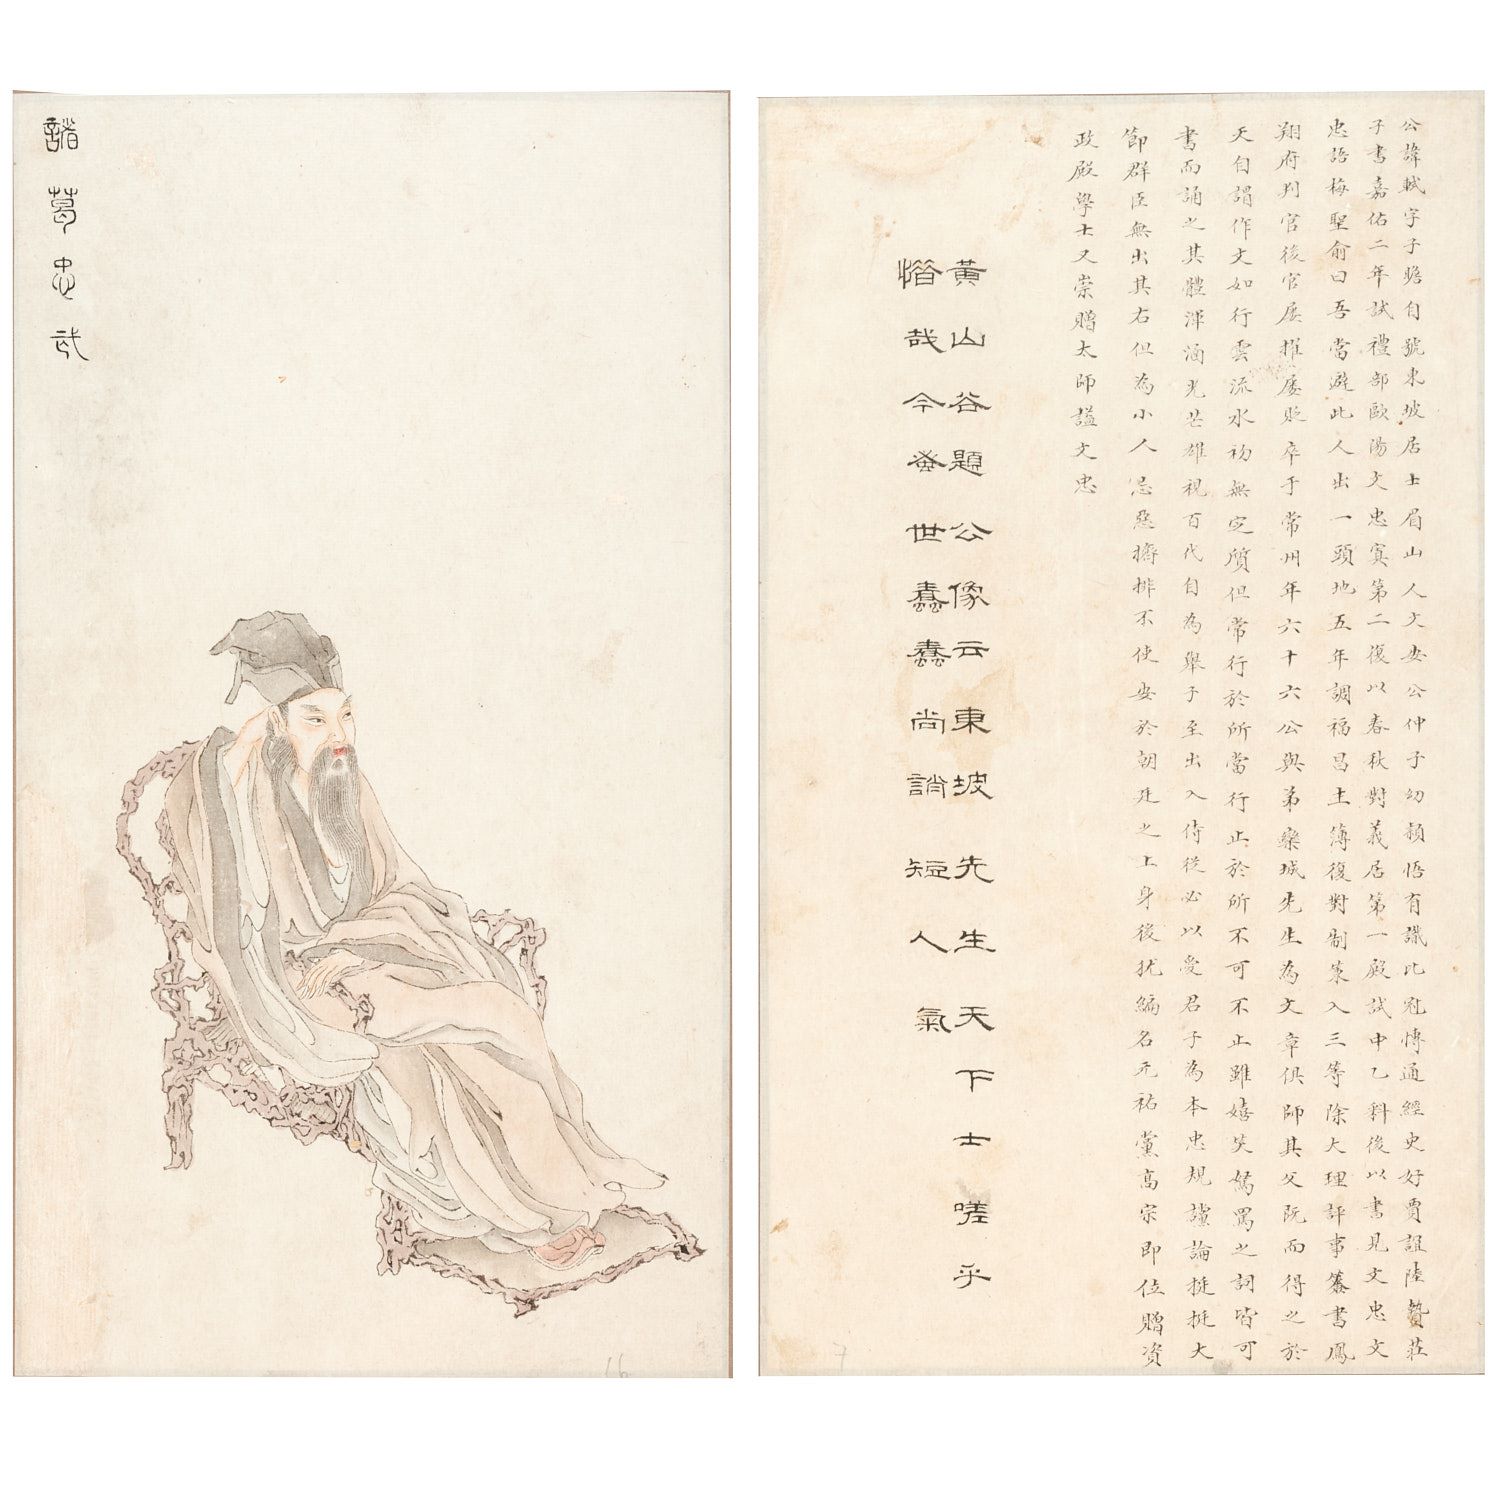 諸葛忠武
公諱軾字子瞻自號東坡居士眉山人文安公仲子幼穎悟有識比冠愽通經史好賈誼陸贄莊
子書嘉佑二年試禮部歐陽文忠寘第二復以春秋對義居第一殿試中乙科後以書見文忠文
忠語梅聖俞曰吾當避此人出一頭地五年調福昌主薄復對制策入三等除大理評事簽書鳳
翔府判官後官屡擢屡貶卒于常州年六十六公與弟欒城先生為文章俱師其父既而得之於
天自謂作文如行雲流水初無定質但常行於所當行止於所不可不止雖嬉笑嫣罵之詞皆可
書而誦之其體渾涵光芒雄視百代自為舉子至出入侍從必以愛君子為本忠規讜論挺挺大
節群臣無出其右但為小人忌惡擠排不使安於朝廷之上身後犹編名元祐黨高宗即位贈資
政殿學士又崇贈太師謚文忠
黃山谷題公像云東坡先生天下士嗟乎
惜哉今蚤世蠢蠢尚誚短人氣
16
7